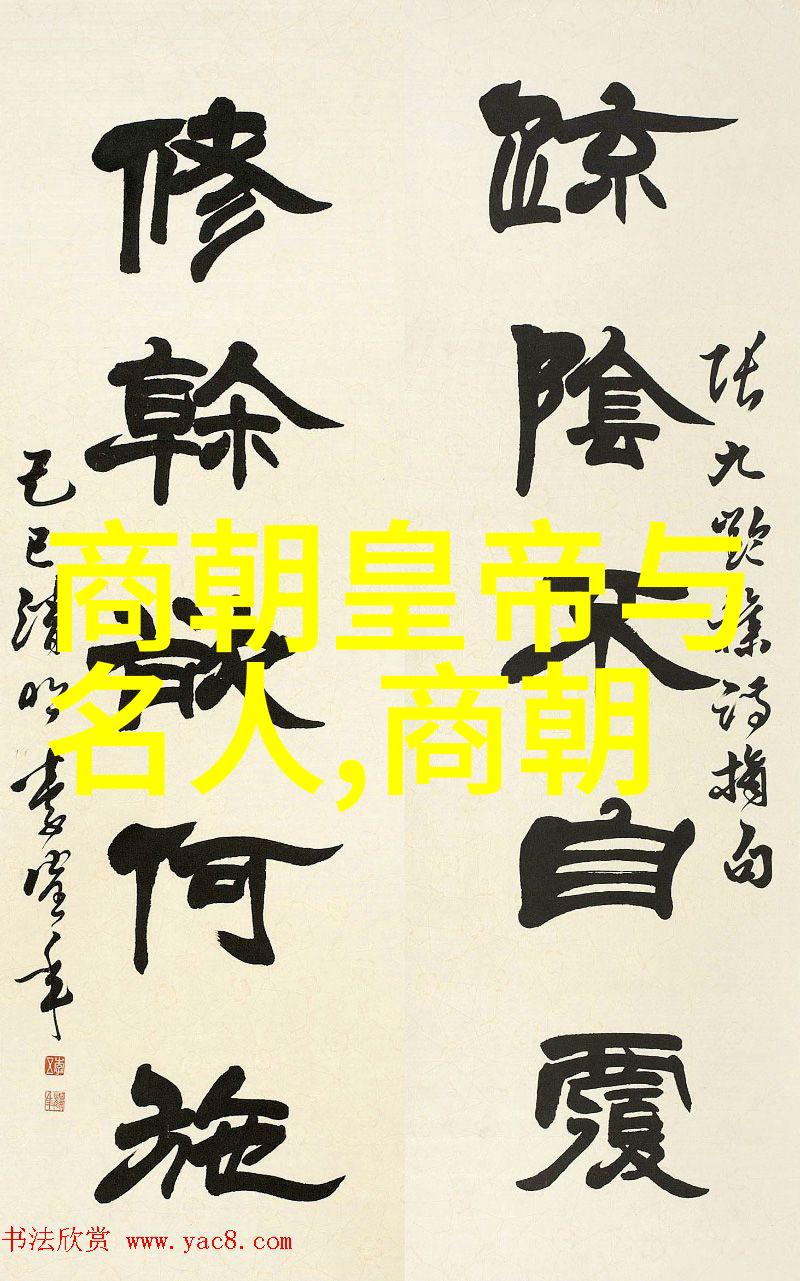 張九齡雜詩摘句
疎陰不自覆
修榦欲何施
己巳清明
商朝皇帝与
名人,商朝
书法欣赏 www.yac8.com